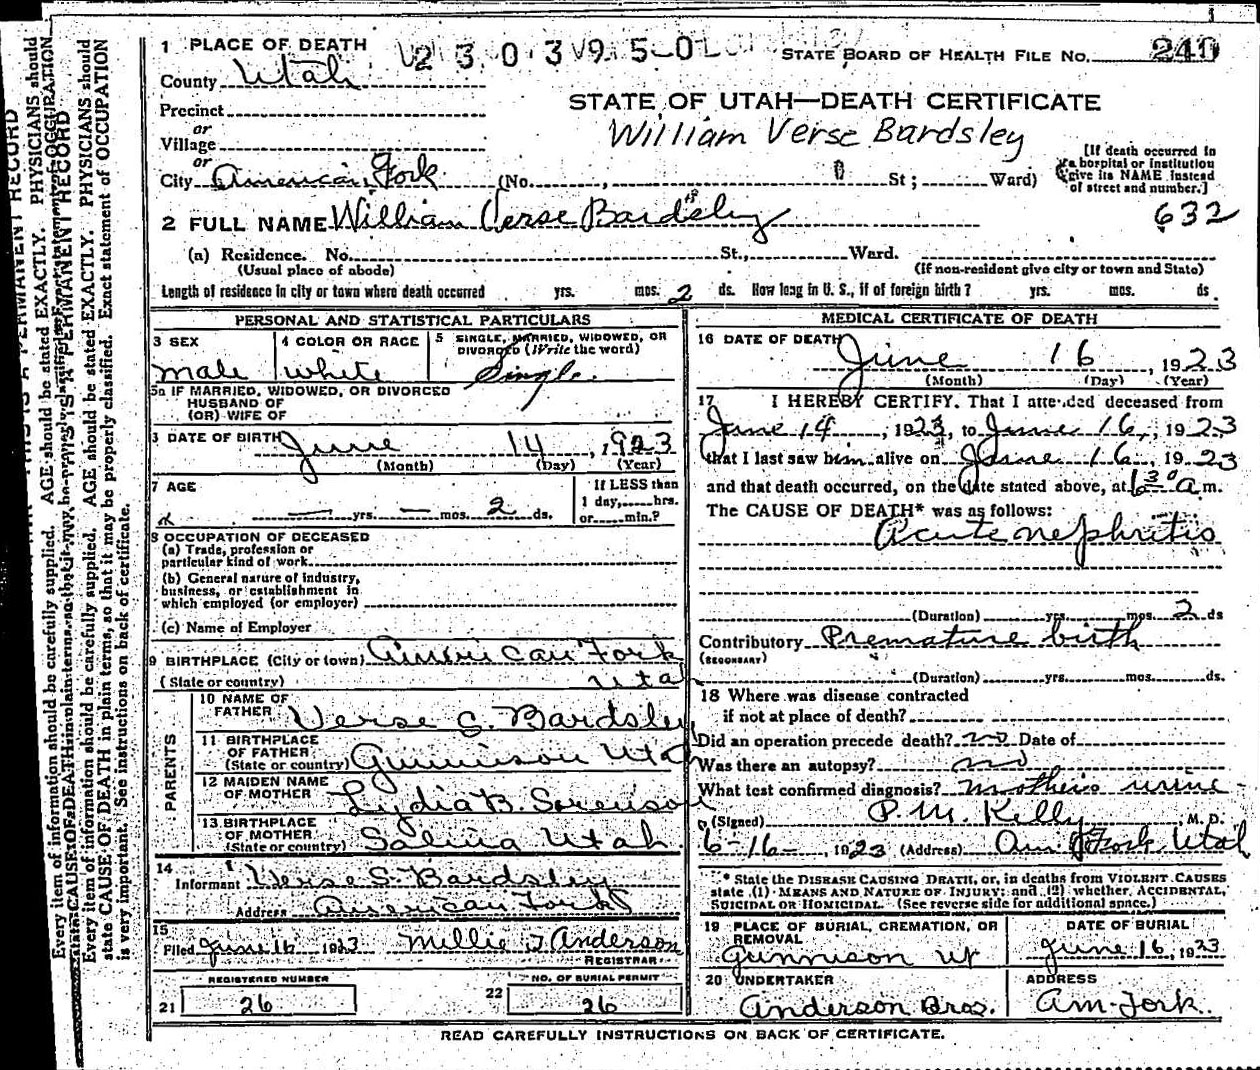 1 PLACE OF DEATH 2303950 STATE BOARD OF HEALTH FILE NO. 240
County Utah
STATE OF UTAH—DEATH CERTIFICATE
Precinct
William Verse Bardsley
or
Village
or
City American Fork (No. , St; Ward)
[If death occurred in
a hospital or institution
give its NAME instead
of street and number.]
632
2 FULL NAME William Verse Bardsley
(a) Residence. No. St., Ward.
(Usual place of abode) (If non-resident give city or town and State)
Length of residence in city or town where death occurred yrs. mos. 2 ds. How long in U. S., if of foreign birth? yrs. mos. ds.
PERSONAL AND STATISTICAL PARTICULARS
3 SEX 4 COLOR OR RACE 5 SINGLE, MARRIED, WIDOWED, OR
DIVORCED (Write the word)
male white Single
5a IF MARRIED, WIDOWED, OR DIVORCED
HUSBAND OF
(OR) WIFE OF
DATE OF BIRTH June 14, 1923
(Month) (Day) (Year)
7 AGE If LESS than
1 day, hrs.
— yrs. — mos. 2 ds. or min.?
8 OCCUPATION OF DECEASED
(a) Trade, profession or
particular kind of work
(b) General nature of industry,
business, or establishment in
which employed (or employer)
(c) Name of Employer
9 BIRTHPLACE (City or town) American Fork
(State or country) Utah
PARENTS
10 NAME OF
FATHER Verse S. Bardsley
11 BIRTHPLACE
OF FATHER
(State or country) Gunnison Utah
12 MAIDEN NAME
OF MOTHER Lydia B. Sorenson
13 BIRTHPLACE
OF MOTHER
(State or country) Salina Utah
14
Informant Verse S. Bardsley
Address American Fork
15
Filed June 16 1923 Millie T. Anderson
REGISTRAR
REGISTERED NUMBER NO. OF BURIAL PERMIT
21 26 22 26
MEDICAL CERTIFICATE OF DEATH
16 DATE OF DEATH
June 16, 1923
(Month) (Day) (Year)
17 I HEREBY CERTIFY, That I attended deceased from
June 14, 1923, to June 16, 1923
that I last saw him alive on June 16, 1923
and that death occurred, on the date stated above, at 6 30 a m.
The CAUSE OF DEATH* was as follows:
Acute nephritis
(Duration) yrs. mos. 2 ds
Contributory Premature birth
(SECONDARY)
(Duration) yrs. mos. ds.
18 Where was disease contracted
if not at place of death?
Did an operation precede death? no Date of
Was there an autopsy? no
What test confirmed diagnosis? mothers urine
(Signed) P. M. Kelly, M. D.
6-16-, 1923 (Address) Am Fork Utah
* State the DISEASE CAUSING DEATH, or, in deaths from VIOLENT CAUSES
state (1) MEANS AND NATURE OF INJURY; and (2) whether ACCIDENTAL,
SUICIDAL OR HOMICIDAL. (See reverse side for additional space.)
19 PLACE OF BURIAL, CREMATION, OR
REMOVAL DATE OF BURIAL
Gunnison Ut June 16, 1923
20 UNDERTAKER ADDRESS
Anderson Bros. Am-Fork.
READ CAREFULLY INSTRUCTIONS ON BACK OF CERTIFICATE.
Every item of information should be carefully supplied. AGE should be stated EXACTLY. PHYSICIANS should
state CAUSE OF DEATH in plain terms, so that it may be properly classified. Exact statement of OCCUPATION
is very important. See instructions on back of certificate.